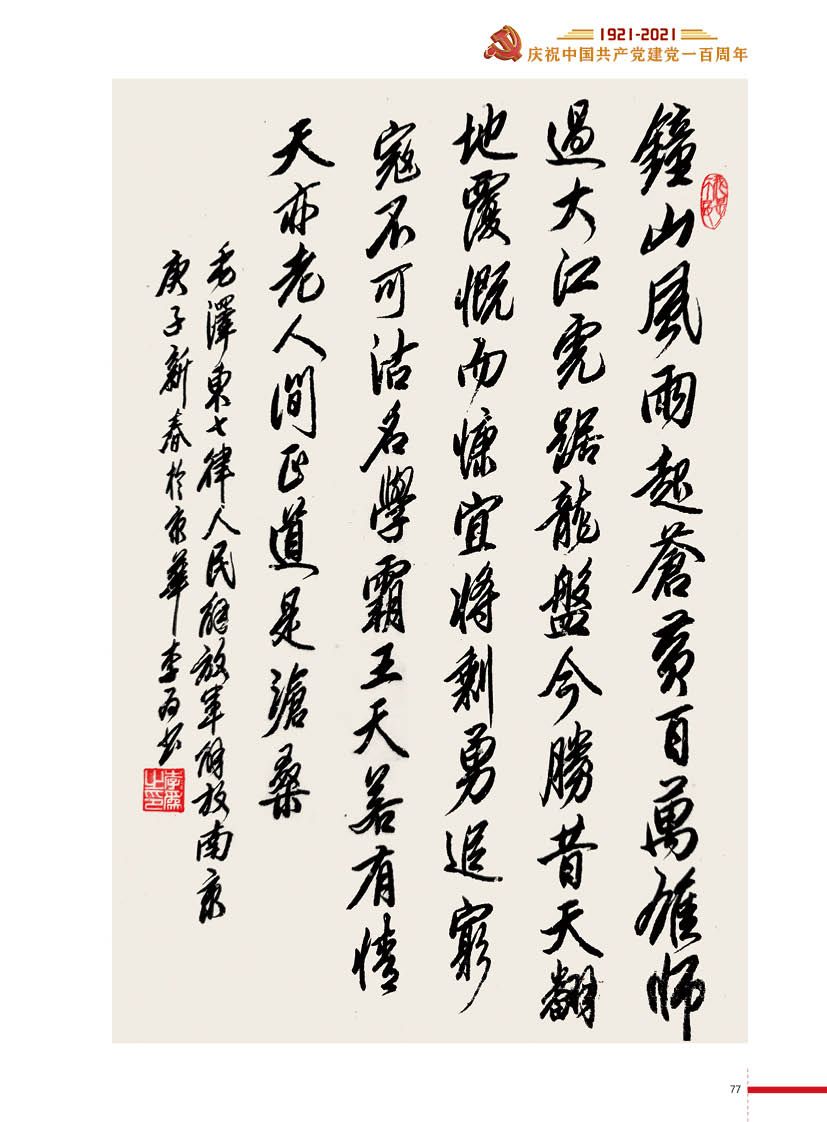 1921-2021
庆祝中国共产党建党一百周年
鐘山風雨起蒼黃百萬雄師
過大江虎踞龍盤今勝昔天翻
地覆慨而慷宜將剩勇追窮
寇不可沽名學霸王天若有情
天亦老人間正道是滄桑
毛澤東七律人民解放軍解放南京
庚子新春於京華李为书
李爲之印
77